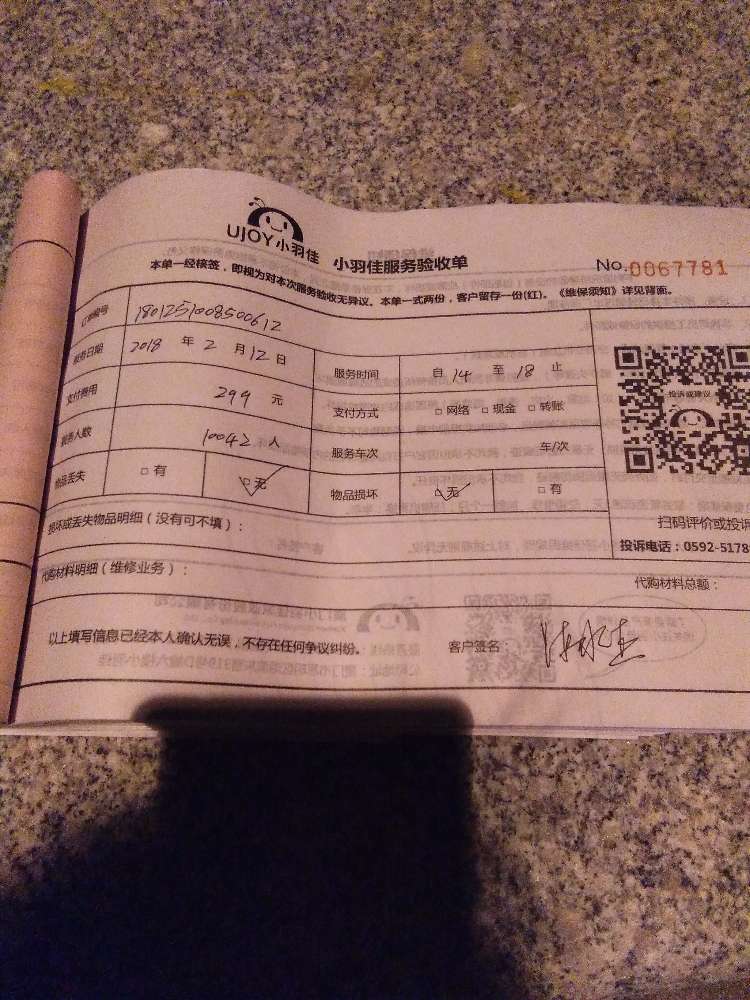 UJOY小羽佳 小羽佳服务验收单 No.0067781
本单一经核签，即视为对本次服务验收无异议、本单一式两份，客户留存一份(红)。《维保须知》详见背面。
订单编号 1801251008500612
服务日期 2018 年 2 月 12 日 服务时间 自 14 至 18 止
支付费用 299 元 支付方式 □网络 □现金 □转账
服务人数 10042 人 服务车次 年/次
物品丢失 □有 □无 物品损坏 □无 □有
投诉或建议
损坏或丢失物品明细（没有可不填）：
扫码评价或投诉
投诉电话：0592-5178
代购材料明细（维修业务）：
代购材料总额：
以上填写信息已经本人确认无误，不存在任何争议纠纷。 客户签名